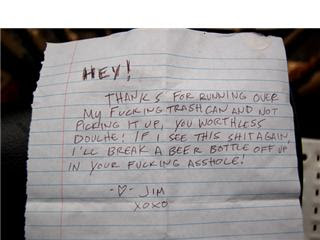 HEY!
THANKS FOR RUNNING OVER
MY FUCKING TRASH CAN AND NOT
PICKING IT UP, YOU WORTHLESS
DOUCHE! IF I SEE THIS SHIT AGAIN,
I'LL BREAK A BEER BOTTLE OFF UP
IN YOUR FUCKING ASSHOLE!
-♡- JIM
XOXO